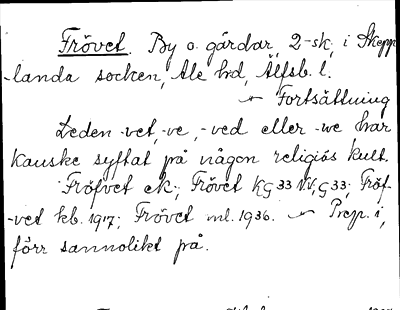 Frövet. By o. gårdar, 2-sk, i Skepp-
landa socken, Ale hd, Älfsb. l.
Fortsättning
Leden -vet, -ve, -ved eller -we har
kanske syftat på någon religiös kult.
Fröfvet ek; Frövet KG 33 V.V, G 33; Fröf-
-vet kb. 1917; Frövet ml. 1936. Prep. i,
förr sannolikt på.